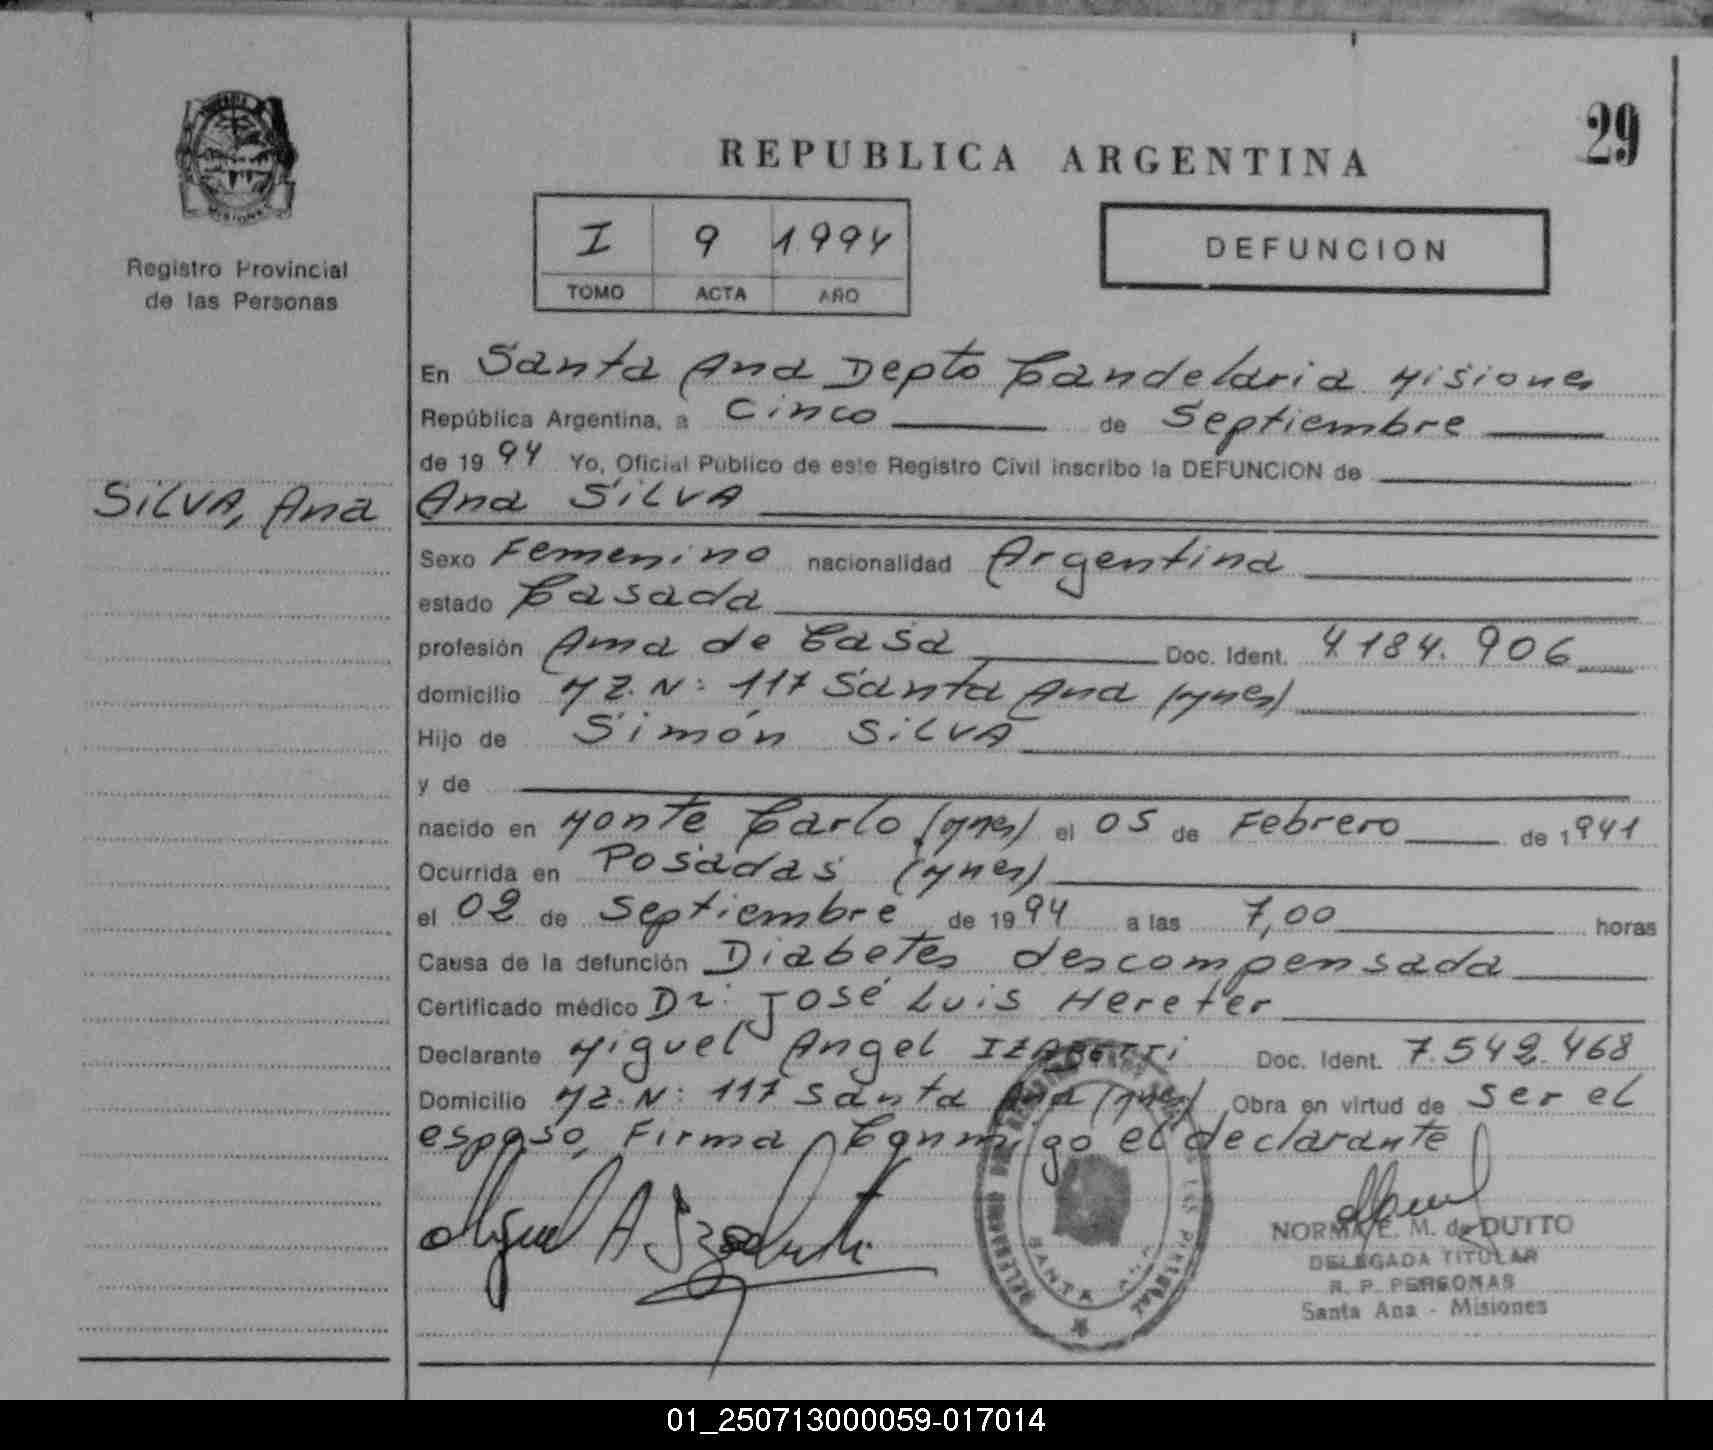 29
REPUBLICA ARGENTINA
I 9 1994
TOMO ACTA AÑO
DEFUNCION
MISIONES
Registro Provincial
de las Personas
SILVA, Ana
En Santa Ana Depto Candelaria Misiones
República Argentina, a Cinco de Septiembre
de 1994 Yo, Oficial Público de este Registro Civil inscribo la DEFUNCION de
Ana SILVA
Sexo Femenino nacionalidad Argentina
estado Casada
profesión Ama de Casa Doc. Ident. 4.184.906
domicilio Mz. N: 117 Santa Ana (Mnes)
Hijo de Simón SILVA
y de
nacido en Monte Carlo (Mnes) el 05 de Febrero de 1941
Ocurrida en Posadas (Mnes)
el 02 de Septiembre de 1994 a las 7,00 horas
Causa de la defunción Diabetes descompensada
Certificado médico Dr: José Luis Hereter
Declarante Miguel Angel Doc. Ident. 7.542.468
Domicilio Mz. N: 117 Santa Ana (Mnes) Obra en virtud de ser el
esposo, Firma Conmigo el declarante
Miguel A
SANTA ANA
NORMA E. M. de DUTTO
DELEGADA TITULAR
R. P. PERSONAS
Santa Ana - Misiones
01_250713000059-017014